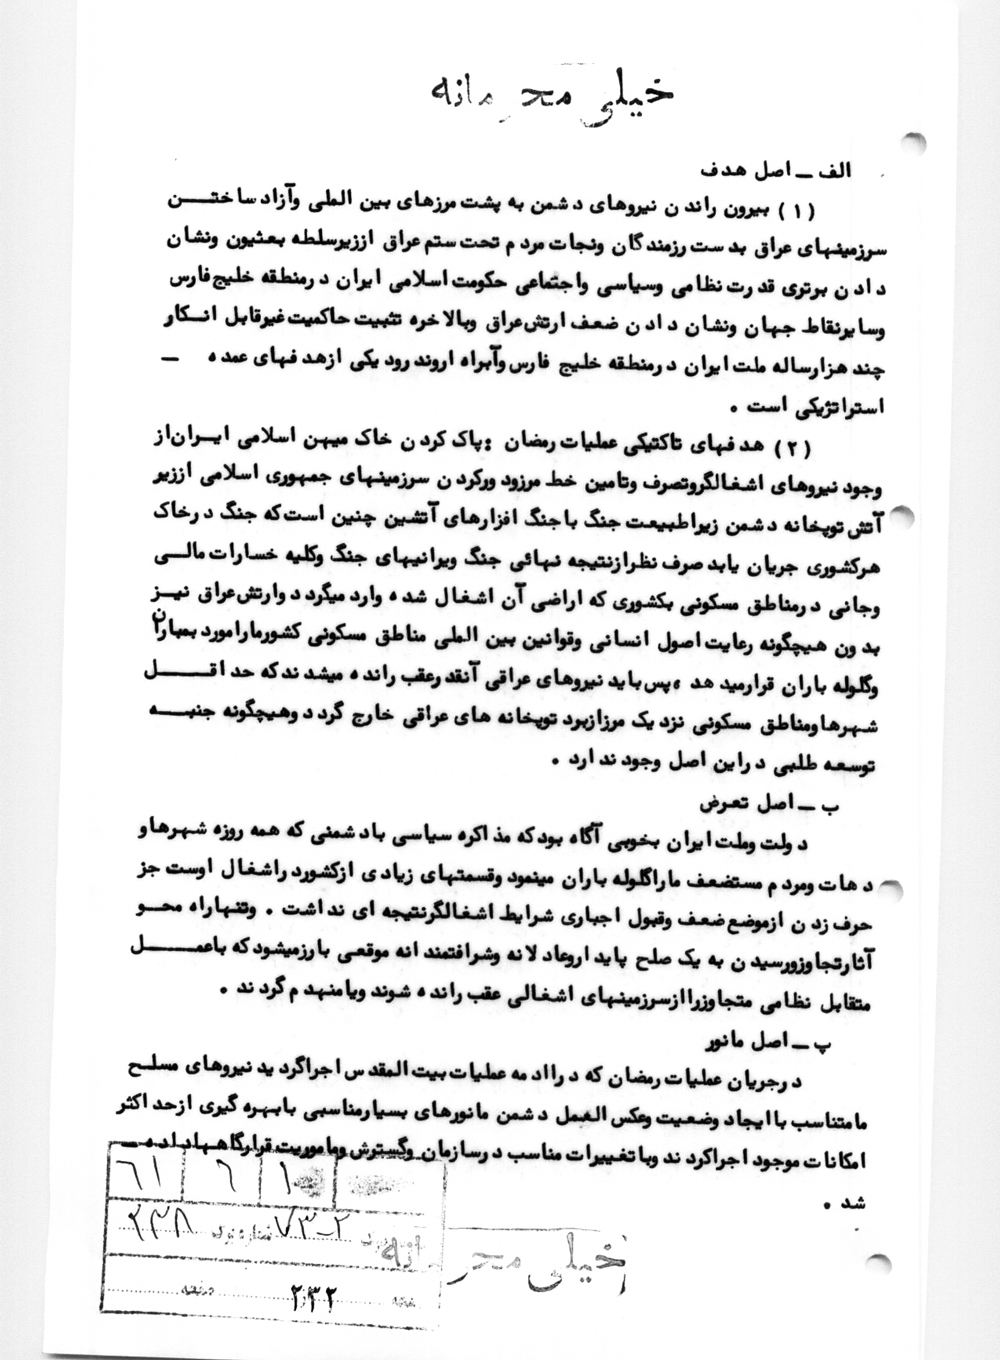 خیلی محرمانه
الف ـ اصل هدف
(۱) بیرون راندن نیروهای دشمن به پشت مرزهای بین المللی وآزاد ساختن
سرزمینهای عراق بدست رزمندگان ونجات مردم تحت ستم عراق اززیرسلطه بعثیون ونشان
دادن برتری قدرت نظامی وسیاسی واجتماعی حکومت اسلامی ایران درمنطقه خلیج فارس
وسایرنقاط جهان ونشان دادن ضعف ارتش عراق وبالاخره تثبیت حاکمیت غیرقابل انکار
چند هزارساله ملت ایران درمنطقه خلیج فارس وآبراه اروند رود یکی ازهدفهای عمده ـ
استراتژیکی است .
(۲) هدفهای تاکتیکی عملیات رمضان : پاک کردن خاک میهن اسلامی ایران از
وجود نیروهای اشغالگروتصرف وتامین خط مرزود ورکردن سرزمینهای جمهوری اسلامی اززیر
آتش توپخانه دشمن زیراطبیعت جنگ باجنگ افزارهای آتشین چنین است که جنگ درخاک
هرکشوری جریان یابد صرف نظرازنتیجه نهائی جنگ ویرانیهای جنگ وکلیه خسارات مالی
وجانی درمناطق مسکونی بکشوری که اراضی آن اشغال شده وارد میگرد د وارتش عراق نیز
بدون هیچگونه رعایت اصول انسانی وقوانین بین المللی مناطق مسکونی کشورمارامورد بمباران
وگلوله باران قرارمید هد ، پس باید نیروهای عراقی آنقدر عقب رانده میشدند که حداقل
شهرهاومناطق مسکونی نزدیک مرزازبرد توپخانه های عراقی خارج گرد د وهیچگونه جنبه
توسعه طلبی دراین اصل وجود ندارد .
ب ـ اصل تعرض
دولت وملت ایران بخوبی آگاه بود که مذاکره سیاسی بادشمنی که همه روزه شهرهاو
دهات ومردم مستضعف ماراگلوله باران مینمود وقسمتهای زیادی ازکشورد راشغال اوست جز
حرف زدن ازموضع ضعف وقبول اجباری شرایط اشغالگرنتیجه ای نداشت . وتنهاراه محو
آثارتجاوزورسیدن به یک صلح پایدا روعادلانه وشرافتمند انه موقعی بارزمیشود که باعمل
متقابل نظامی متجاوزرا ازسرزمینهای اشغالی عقب رانده شوند ویامنهدم گردند .
پ ـ اصل مانور
درجریان عملیات رمضان که درادامه عملیات بیت المقدس اجراگردید نیروهای مسلح
مامتناسب باایجاد وضعیت وعکس العمل دشمن مانورهای بسیارمناسبی بابهره گیری ازحداکثر
امکانات موجود اجراکردند وباتغییرات مناسب درسازمان وگسترش وماموریت قرارگاهها داده ـ
شد .
۱ ۶ ۶۱
۷۳-۲ شماره نوک ۲۳۸
خیلی محرمانه
۲۳۲